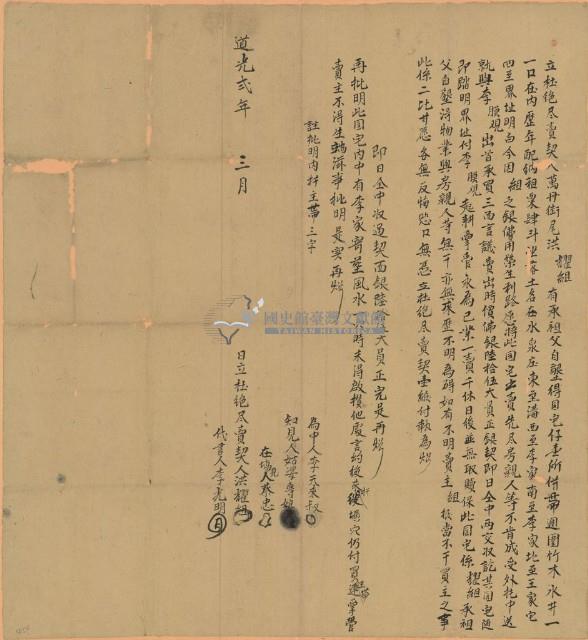 立杜絕尽賣契人萬丹街尾洪耀組有承祖父自墾得園宅仔壹所併帶週圍竹木水井一
一口在內歷年配納租粟肆斗坐落土名在水泉庄東至溝西至李家南至李家北至王家宅
四至界址明白今因組之銀費用樂生利路愿將此園宅出賣先尽房親人等不肯成受外托中送
就與李順觀出首承買三面言議賣出時價佛銀陸拾伍大員正銀契即日仝中兩交收訖其園宅隨
即踏明界址付李順觀起耕掌管永為己業一賣千休日後並無取贖保此園宅係耀組承祖
父自墾淂物業與房親人等無干亦無來歷不明為碍如有不明賣主組抵當不干買主之事
此係二比甘愿各無反悔恐口無憑立杜絕尽賣契壹紙付執為照
即日仝中收過契面銀陸拾伍大員正完足再照
再批明此園宅內中有李家寄塟風水後時未淂啟攢他處言約後來墳穴仍付買掌管
賣主不得生端滋事批明是实再照
註批明內 主帶三字
為中人李天來叔
知見人
在塲人
日立杜絕尽賣契人洪耀組
代書人李光明
道光弍年 三月
國史館臺灣文獻館
TAIWAN HISTORICA